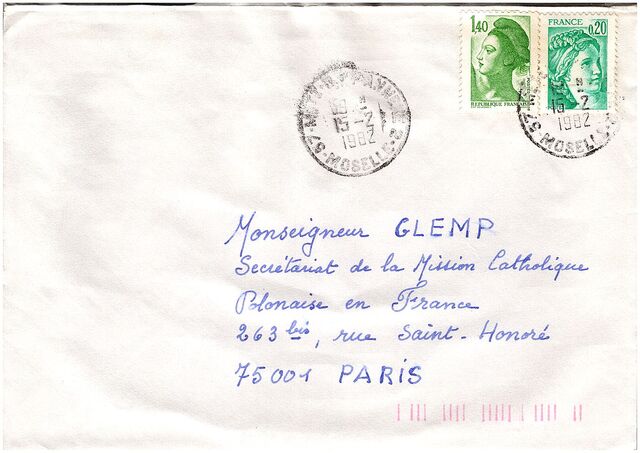 1,40
REPUBLIQUE FRANÇAISE
FRANCE
0,20
15-2
1982
57-MOSELLE
15-2
1982
57 MOSELLE
Monseigneur GLEMP
Secrétariat de la Mission Catholique
Polonaise en France
263 bis, rue Saint-Honoré
75001 PARIS